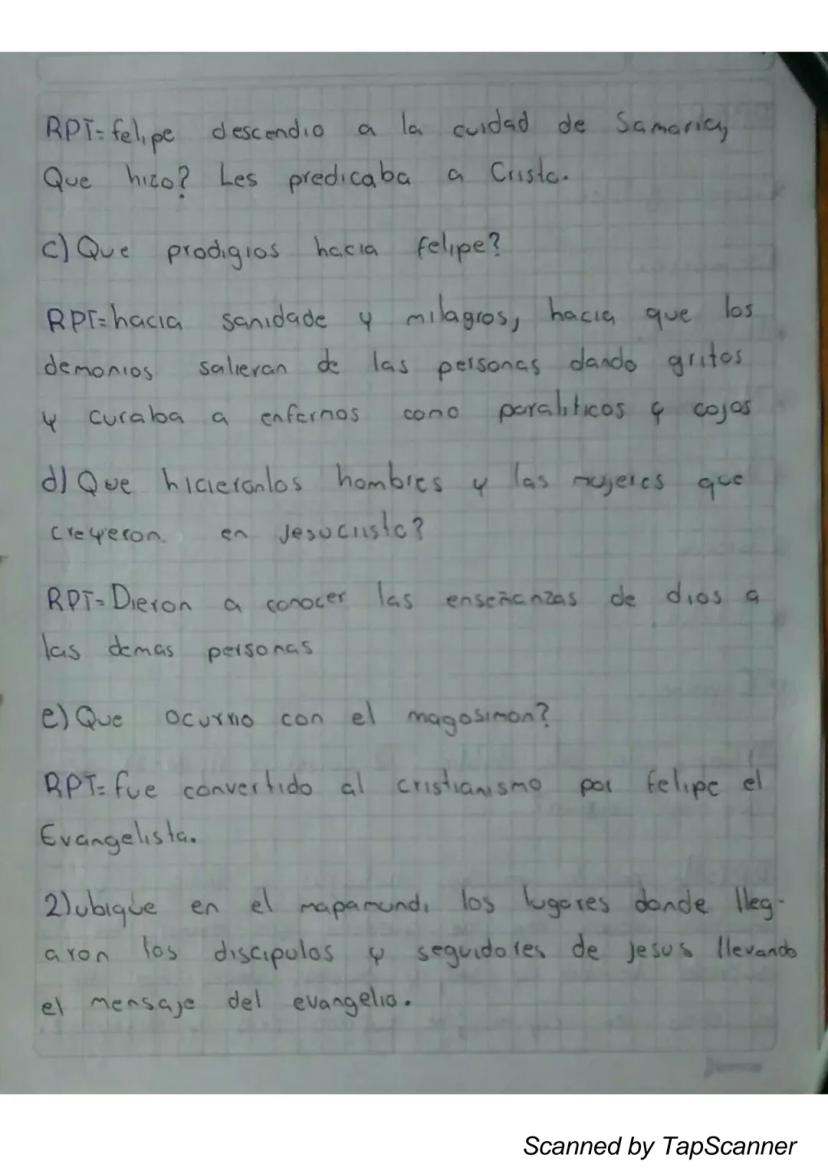 RPT= felipe descendio a la cuidad de Samaria,
Que hizo? Les predicaba a Cristo.
c) Que prodigios hacia felipe?
RPT= hacia sanidade y milagros, hacia que los
demonios salieran de las personas dando gritos
y curaba a enfermos como paraliticos y cojos
d) Que hicieronlos hombres y las mujeres que
creyeron en Jesucristo?
RPT= Dieron a conocer las enseñanzas de dios a
las demas personas
e) Que ocurrio con el magosimon?
RPT= fue convertido al cristianismo por felipe el
Evangelista.
2) ubique en el mapamundi los lugares donde lleg-
aron los discipulos y seguidores de Jesus llevando
el mensaje del evangelio.
Scanned by TapScanner